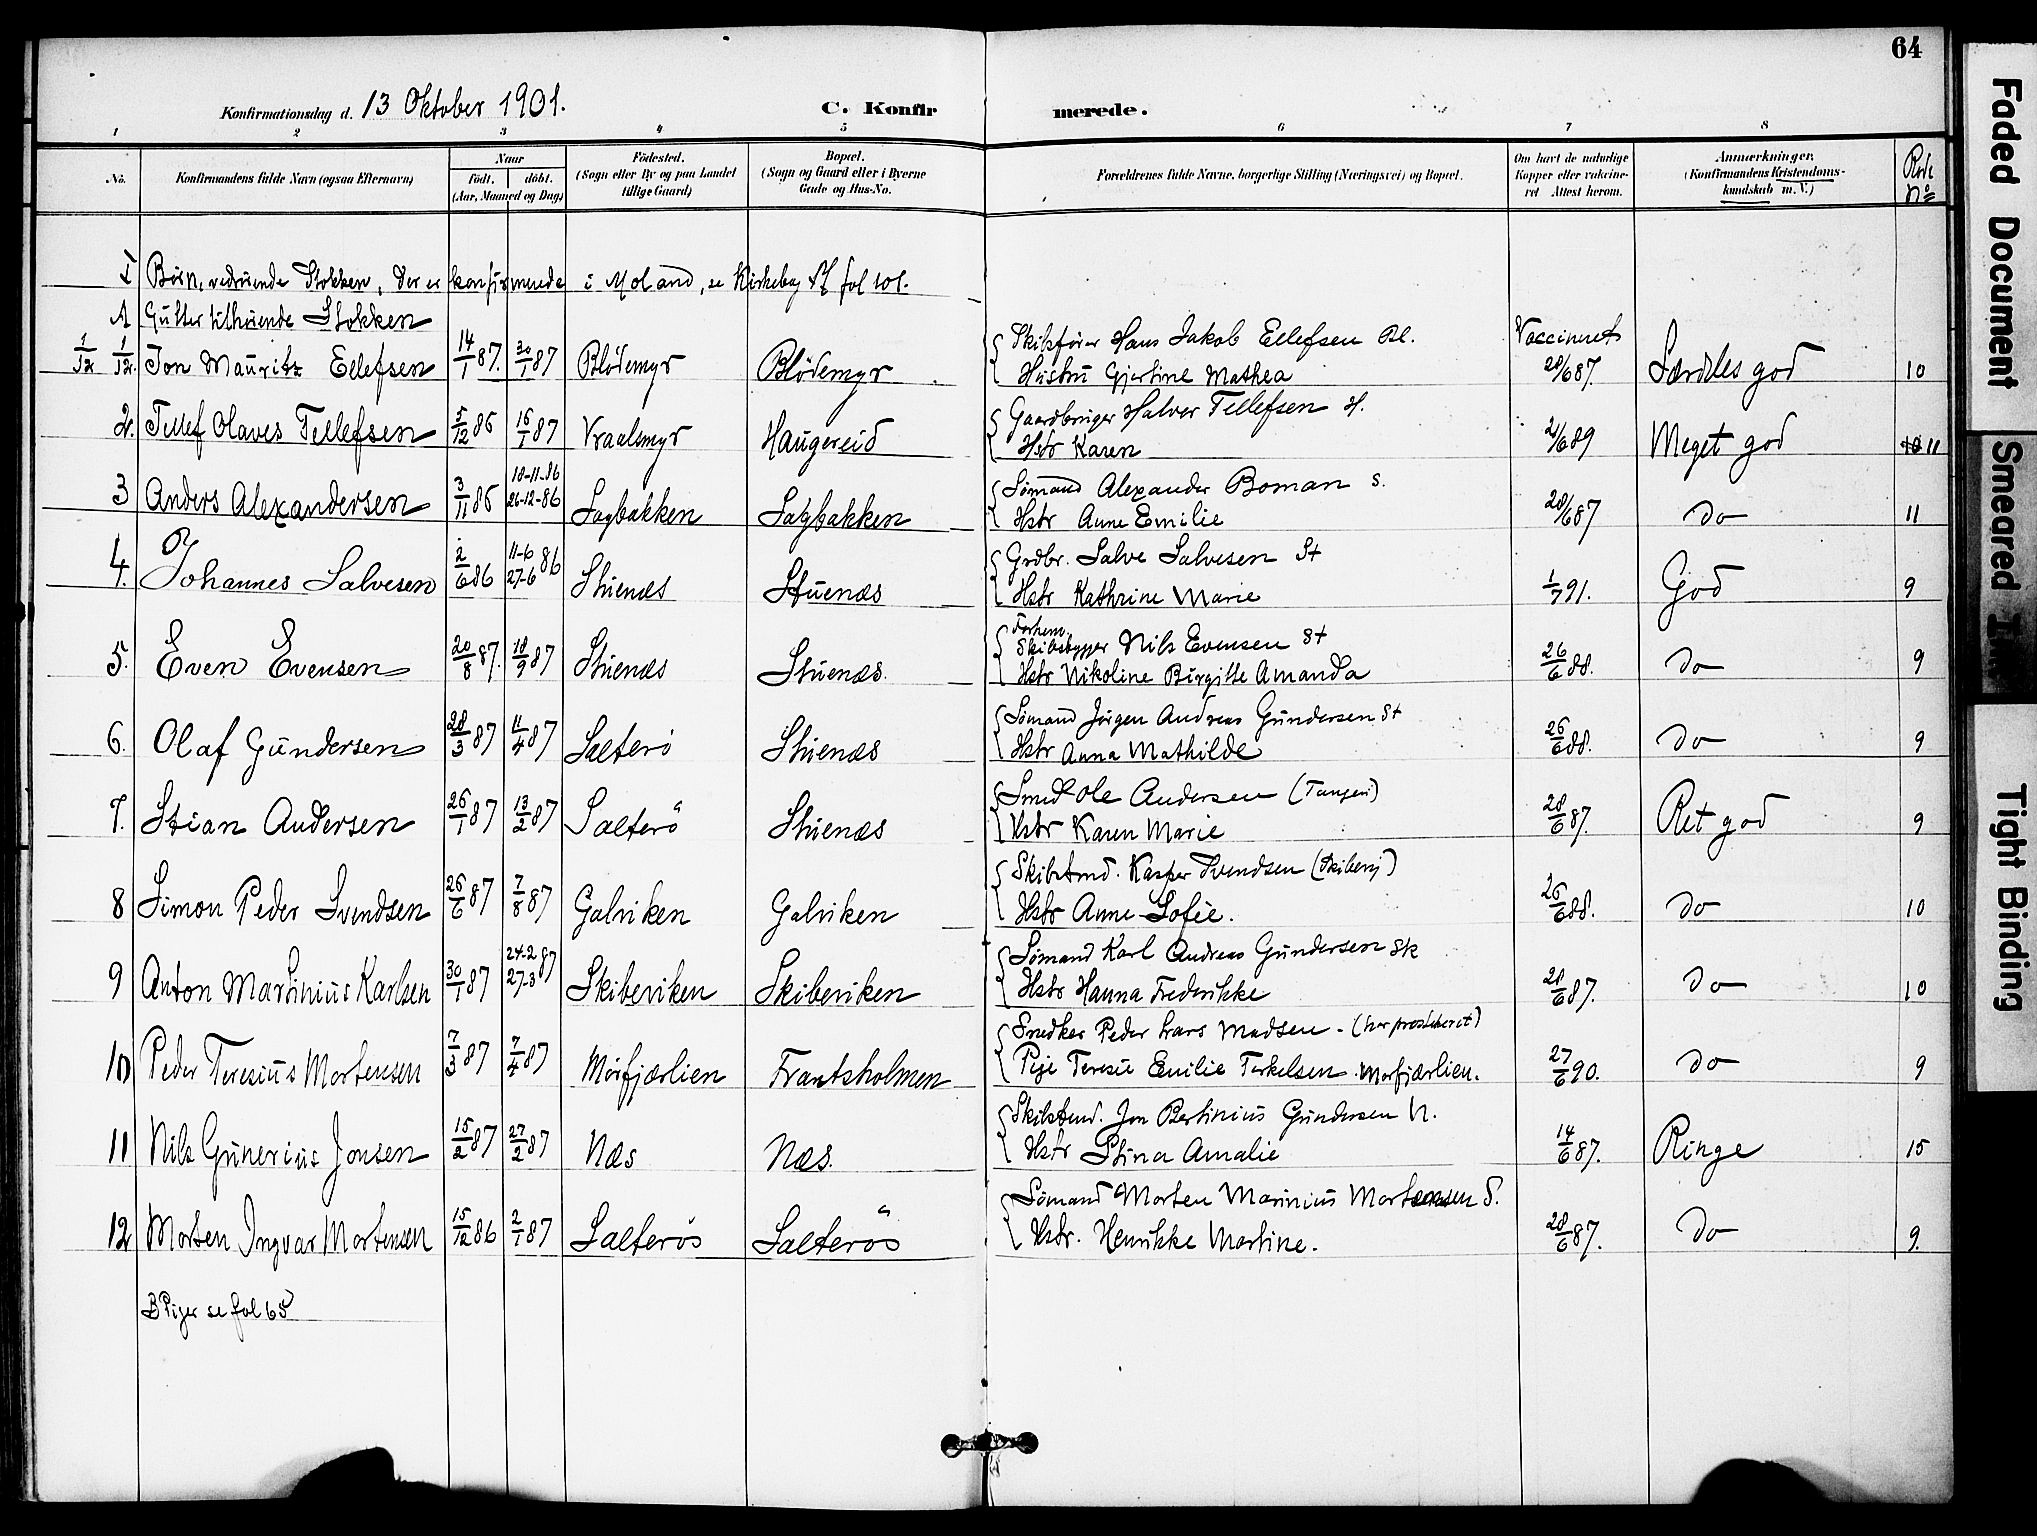 64
Konfirmationsdag d. 13 Oktober 1901.
C. Konfirmerede.
1 2 3 4 5 6 7 8
No.
Konfirmandens fulde Navn (ogsaa Efternavn)
Naar
födt. döbt.
(Aar, Maaned og Dag)
Födested.
(Sogn eller By og paa Landet
tillige Gaard)
Bopæl.
(Sogn og Gaard eller i Byerne
Gade og Hus-No.
Forældrenes fulde Navne, borgerlige Stilling (Næringsvei) og Bopæl.
Om havt de naturlige
Kopper eller vakcine-
ret Attest herom.
Anmærkninger.
(Konfirmandens Kristendoms-
kundskab m. V.)
Rode
No
I Börn, vedrørende Stokken, der er konfirmerede i Moland, se Kirkebog fol 101.
A Gutter tilhørende Stokken
1/12 1/12. Jon Mauritz Ellefsen 14/1 87. 30/1 87 Blödemyr Blödemyr Skibsfører Hans Jakob Ellefsen Bl. Vaccineret
Hustru Gjertine Mathea 28/6 87. Særdeles god 10
2. Tellef Olaves Tellefsen 5/12 86 16/1 87 Vraalsmyr Haugereid Gaardbruger Halvor Tellefsen H.
Hstr Karen 2/6 89 Meget god 10 11
3 Anders Alexandersen 3/11 86 18-11-86
26-12-86 Sagbakken Sagbakken Sømand Alexander Boman S.
Hstr Anne Emilie 28/6 87 do 11
4. Johannes Salvesen 2/6 86 11-6
27-6 86 Stuenæs Stuenæs Grdbr. Salve Salvesen St
Hstr Kathrine Marie 1/7 91. God 9
5. Even Evensen 20/8 87. 18/9 87 Stuenæs Stuenæs. Forhen.
Skibsbygger Nils Evensen St
Hstr Nikoline Birgitte Amanda 26/6 88. do 9
6. Olaf Gundersen 28/3 87 11/4 87 Salterö Stuenæs Sømand Jörgen Andreas Gundersen St
Hstr Anna Mathilde 26/6 88. do 9
7. Stian Andersen 26/1 87 13/2 87 Salterö Stuenæs Smed Ole Andersen (Tangen)
Hstr Karen Marie 28/6 87. Ret god 9
8 Simon Peder Svendsen 26/6 87 7/8 87 Galviken Galviken Skibstmd. Kasper Svendsen
Hstr Anne Sofie. 26/6 88. do 10
9 Anton Martinius Karlsen 30/1 87 24-2
27-3 87 Skibeviken Skibeviken Sømand Karl Andreas Gundersen Sk
Hstr Hanna Frederikke 28/6 87. do 10
10 Peder Teresius Mortensen 7/3 87 7/4 87 Mörfjærlien Frantsholmen Snedker Peder Lars Madsen -
Pige Teresie Emilie Terkelsen Morfjærlien. 27/6 90. do 9
11 Nils Gunerius Jonsen 15/2 87 27/2 87 Næs Næs. Skibstmd. Jon Bertinius Gundersen N.
Hstr Stina Amalie 14/6 87. Ringe 15
12 Morten Ingvar Mortensen 15/12 86 2/1 87 Salterös Salterös Sømand Morten Marinius Mortensen S.
Hstr. Henrikke Martine. 28/6 87. do 9.
B Piger se fol 65
Faded Document
Smeared Ink
Tight Binding